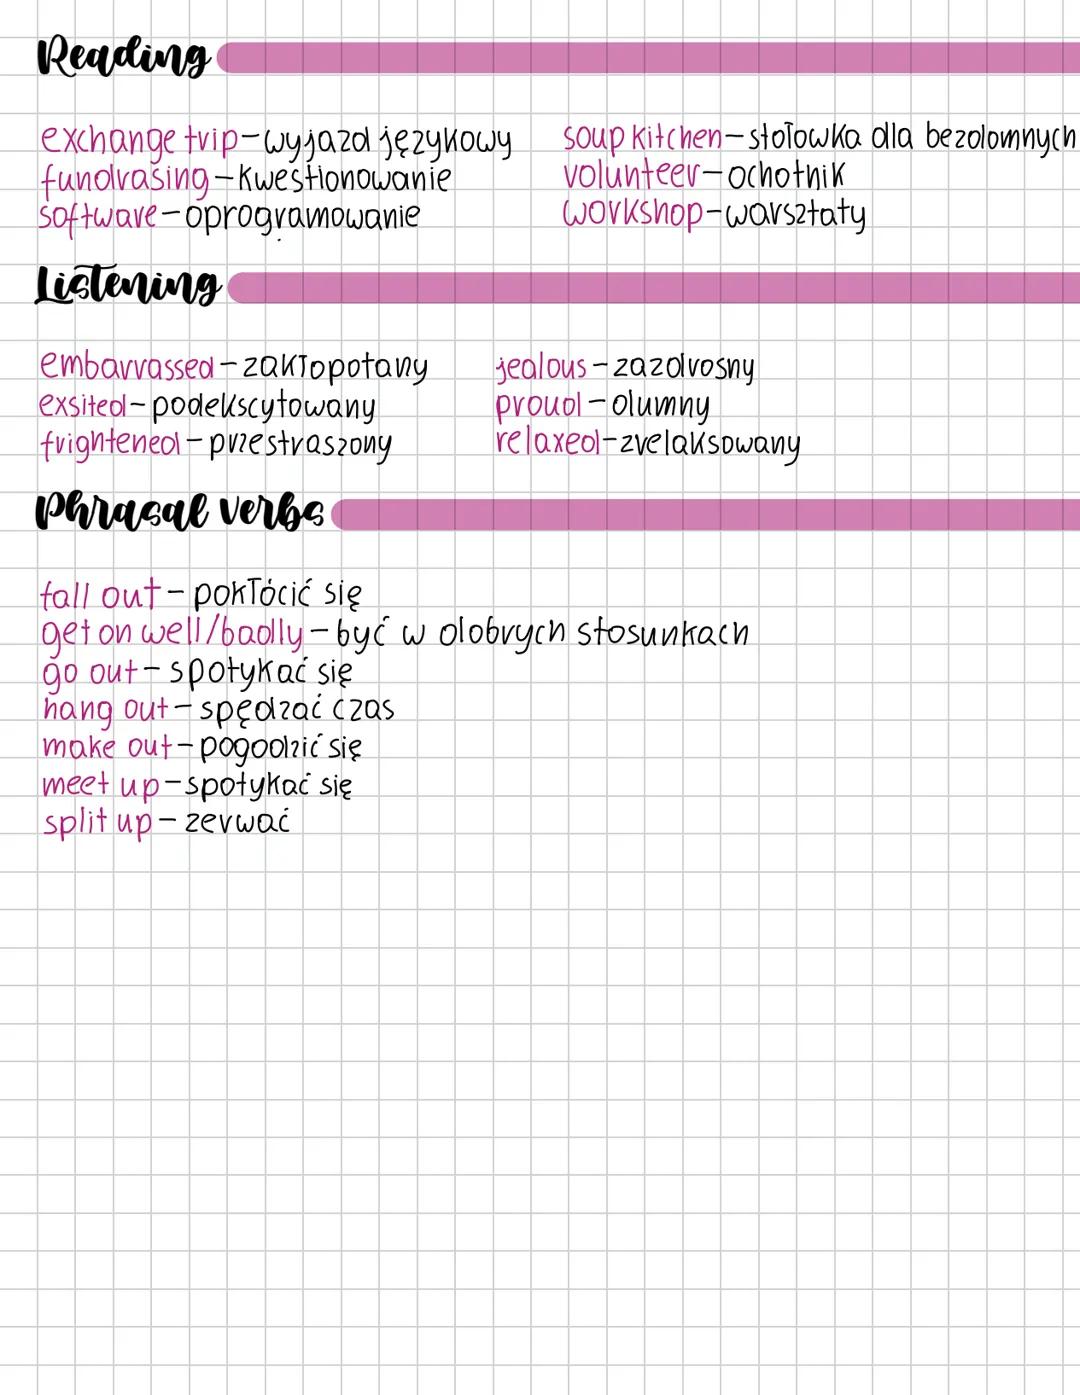 Reading
exchange trip - wyjazd językowy
fundrasing - kwestionowanie
software - oprogramowanie
soup kitchen - stołowka dla bezdomnych
volunteer - ochotnik
workshop - warsztaty
Listening
embarrassed - zakłopotany
exsited - podekscytowany
frightened - przestraszony
jealous - zazdrosny
proud - dumny
relaxed - zrelaksowany
Phrasal verbs
fall out - pokłócić się
get on well/badly - być w dobrych stosunkach
go out - spotykać się
hang out - spędzać czas
make out - pogodzić się
meet up - spotykać się
split up - zerwać